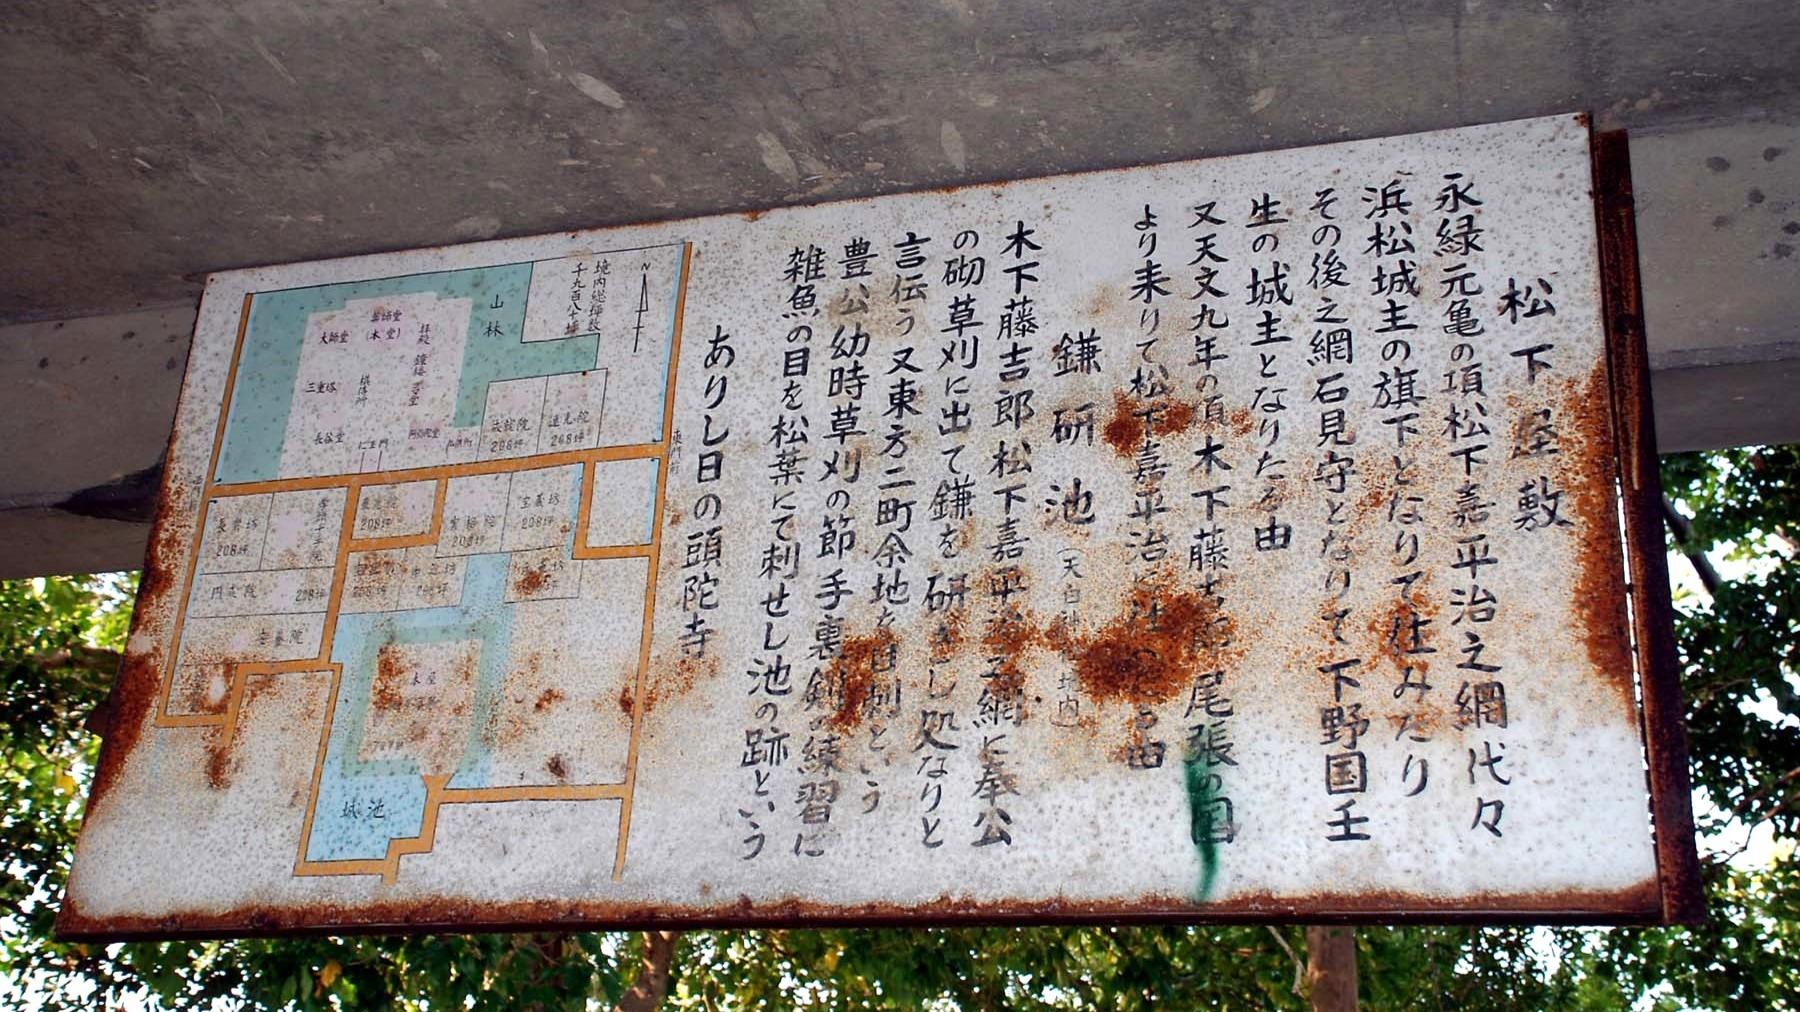 松下屋敷
永緑元亀の項松下嘉平治之綱代々
浜松城主の旗下となりて住みたり
その後之綱石見守となりて下野国壬
生の城主となりたる由
又天文九年の頂木下藤吉郎尾張の国
より来りて松下嘉平治に仕る由
鎌研池
木下藤吉郎松下嘉平治之綱に奉公
の砌草刈に出て鎌を研ぎし処なりと
言伝う又東方二町余地を目刺という
豊公幼時草刈の節手裏剣の練習に
雑魚の目を松葉にて刺せし池の跡という
ありし日の頭陀寺
N
境内総坪数
千九百八十坪
山林
大師堂
(本堂)
拝殿
鐘楼
三重塔
長谷堂
仁王門
道見院
208坪
208坪
東門前
長寿坊
208坪
208坪
宝蔵坊
208坪
208坪
円成院
208坪
城池